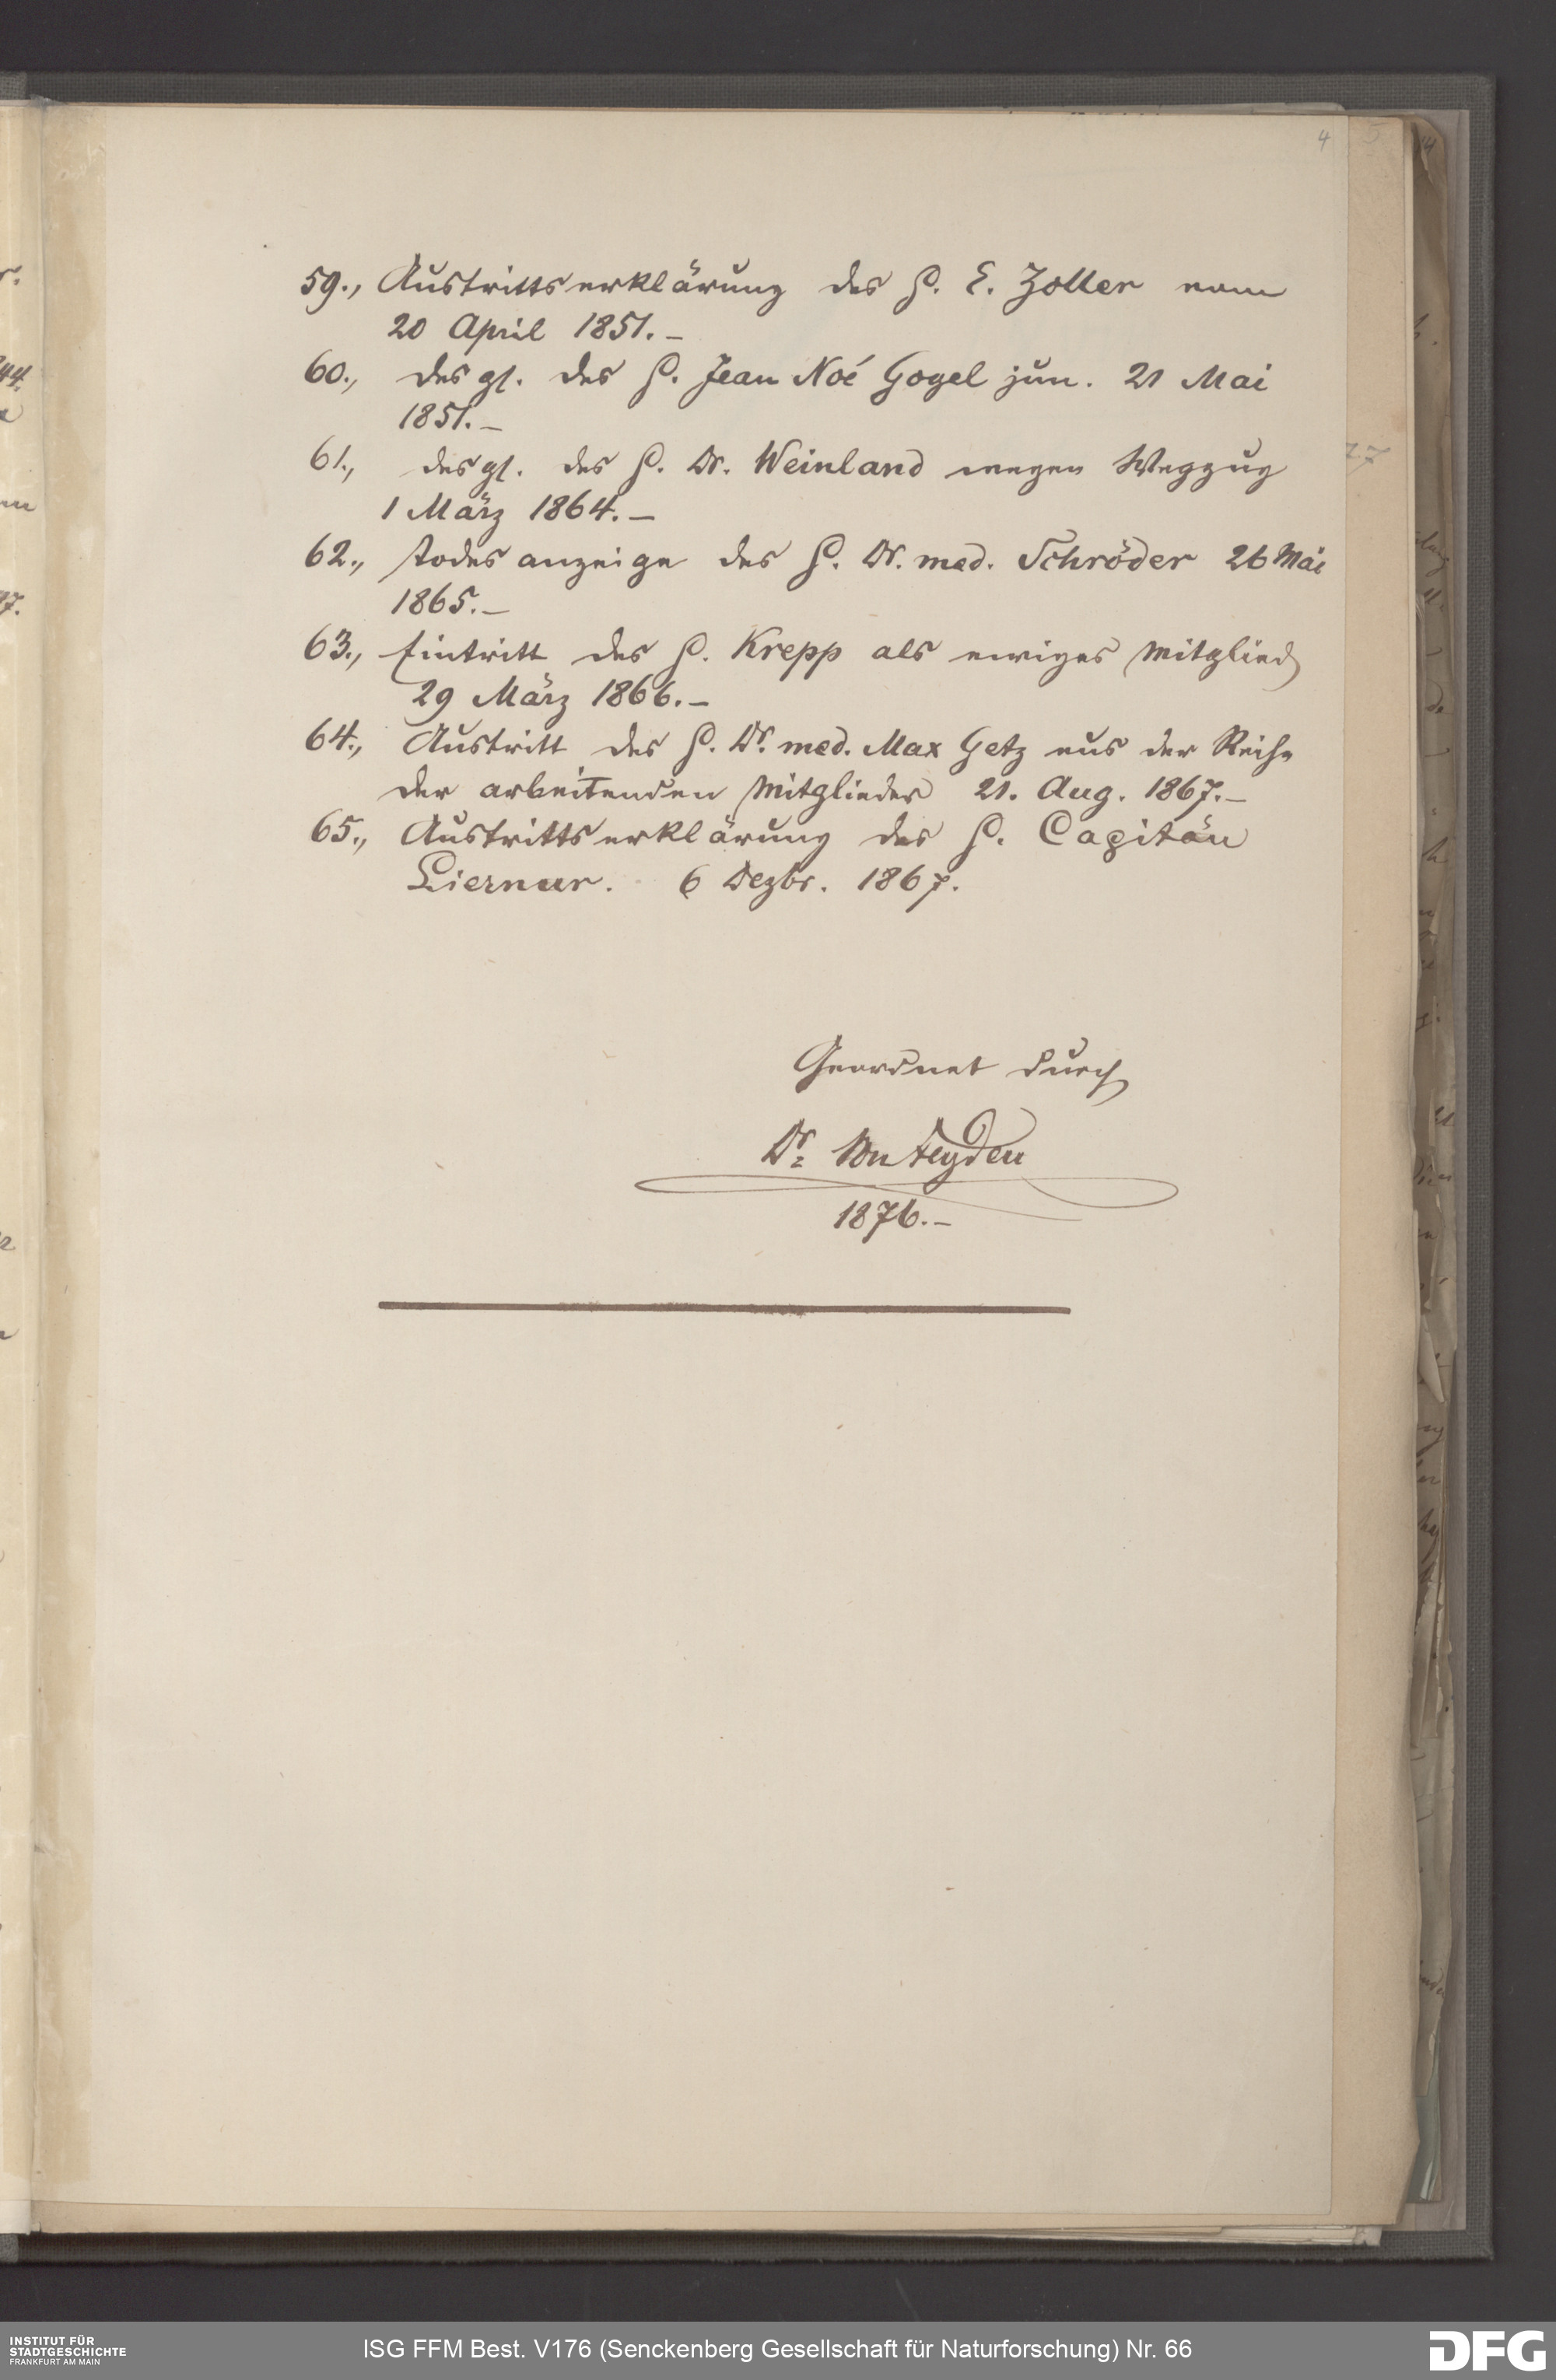 4
59., Austrittserklärung des H. E. Zoller vom
20 April 1851.–
60., desgl. des H. Jean Noé Gogel jun. 21 Mai
1851.–
61., desgl. des H. Dr. Weinland wegen Wegzug
1 März 1864.–
62., Todesanzeige des H. Dr. med. Schröder 26 Mai
1865.–
63., Eintritt des H. Krepp als ewiges Mitglied
29 März 1866.–
64., Austritt des H. Dr. med. Max Getz aus der Reihe
der arbeitenden Mitglieder 21. Aug. 1867.–
65., Austrittserklärung des H. Capitän
Liernur. 6 Dezbr. 1867.
Geordnet durch
Dr. von Heyden
1876.–
INSTITUT FÜR
STADTGESCHICHTE
FRANKFURT AM MAIN
ISG FFM Best. V176 (Senckenberg Gesellschaft für Naturforschung) Nr. 66
DFG